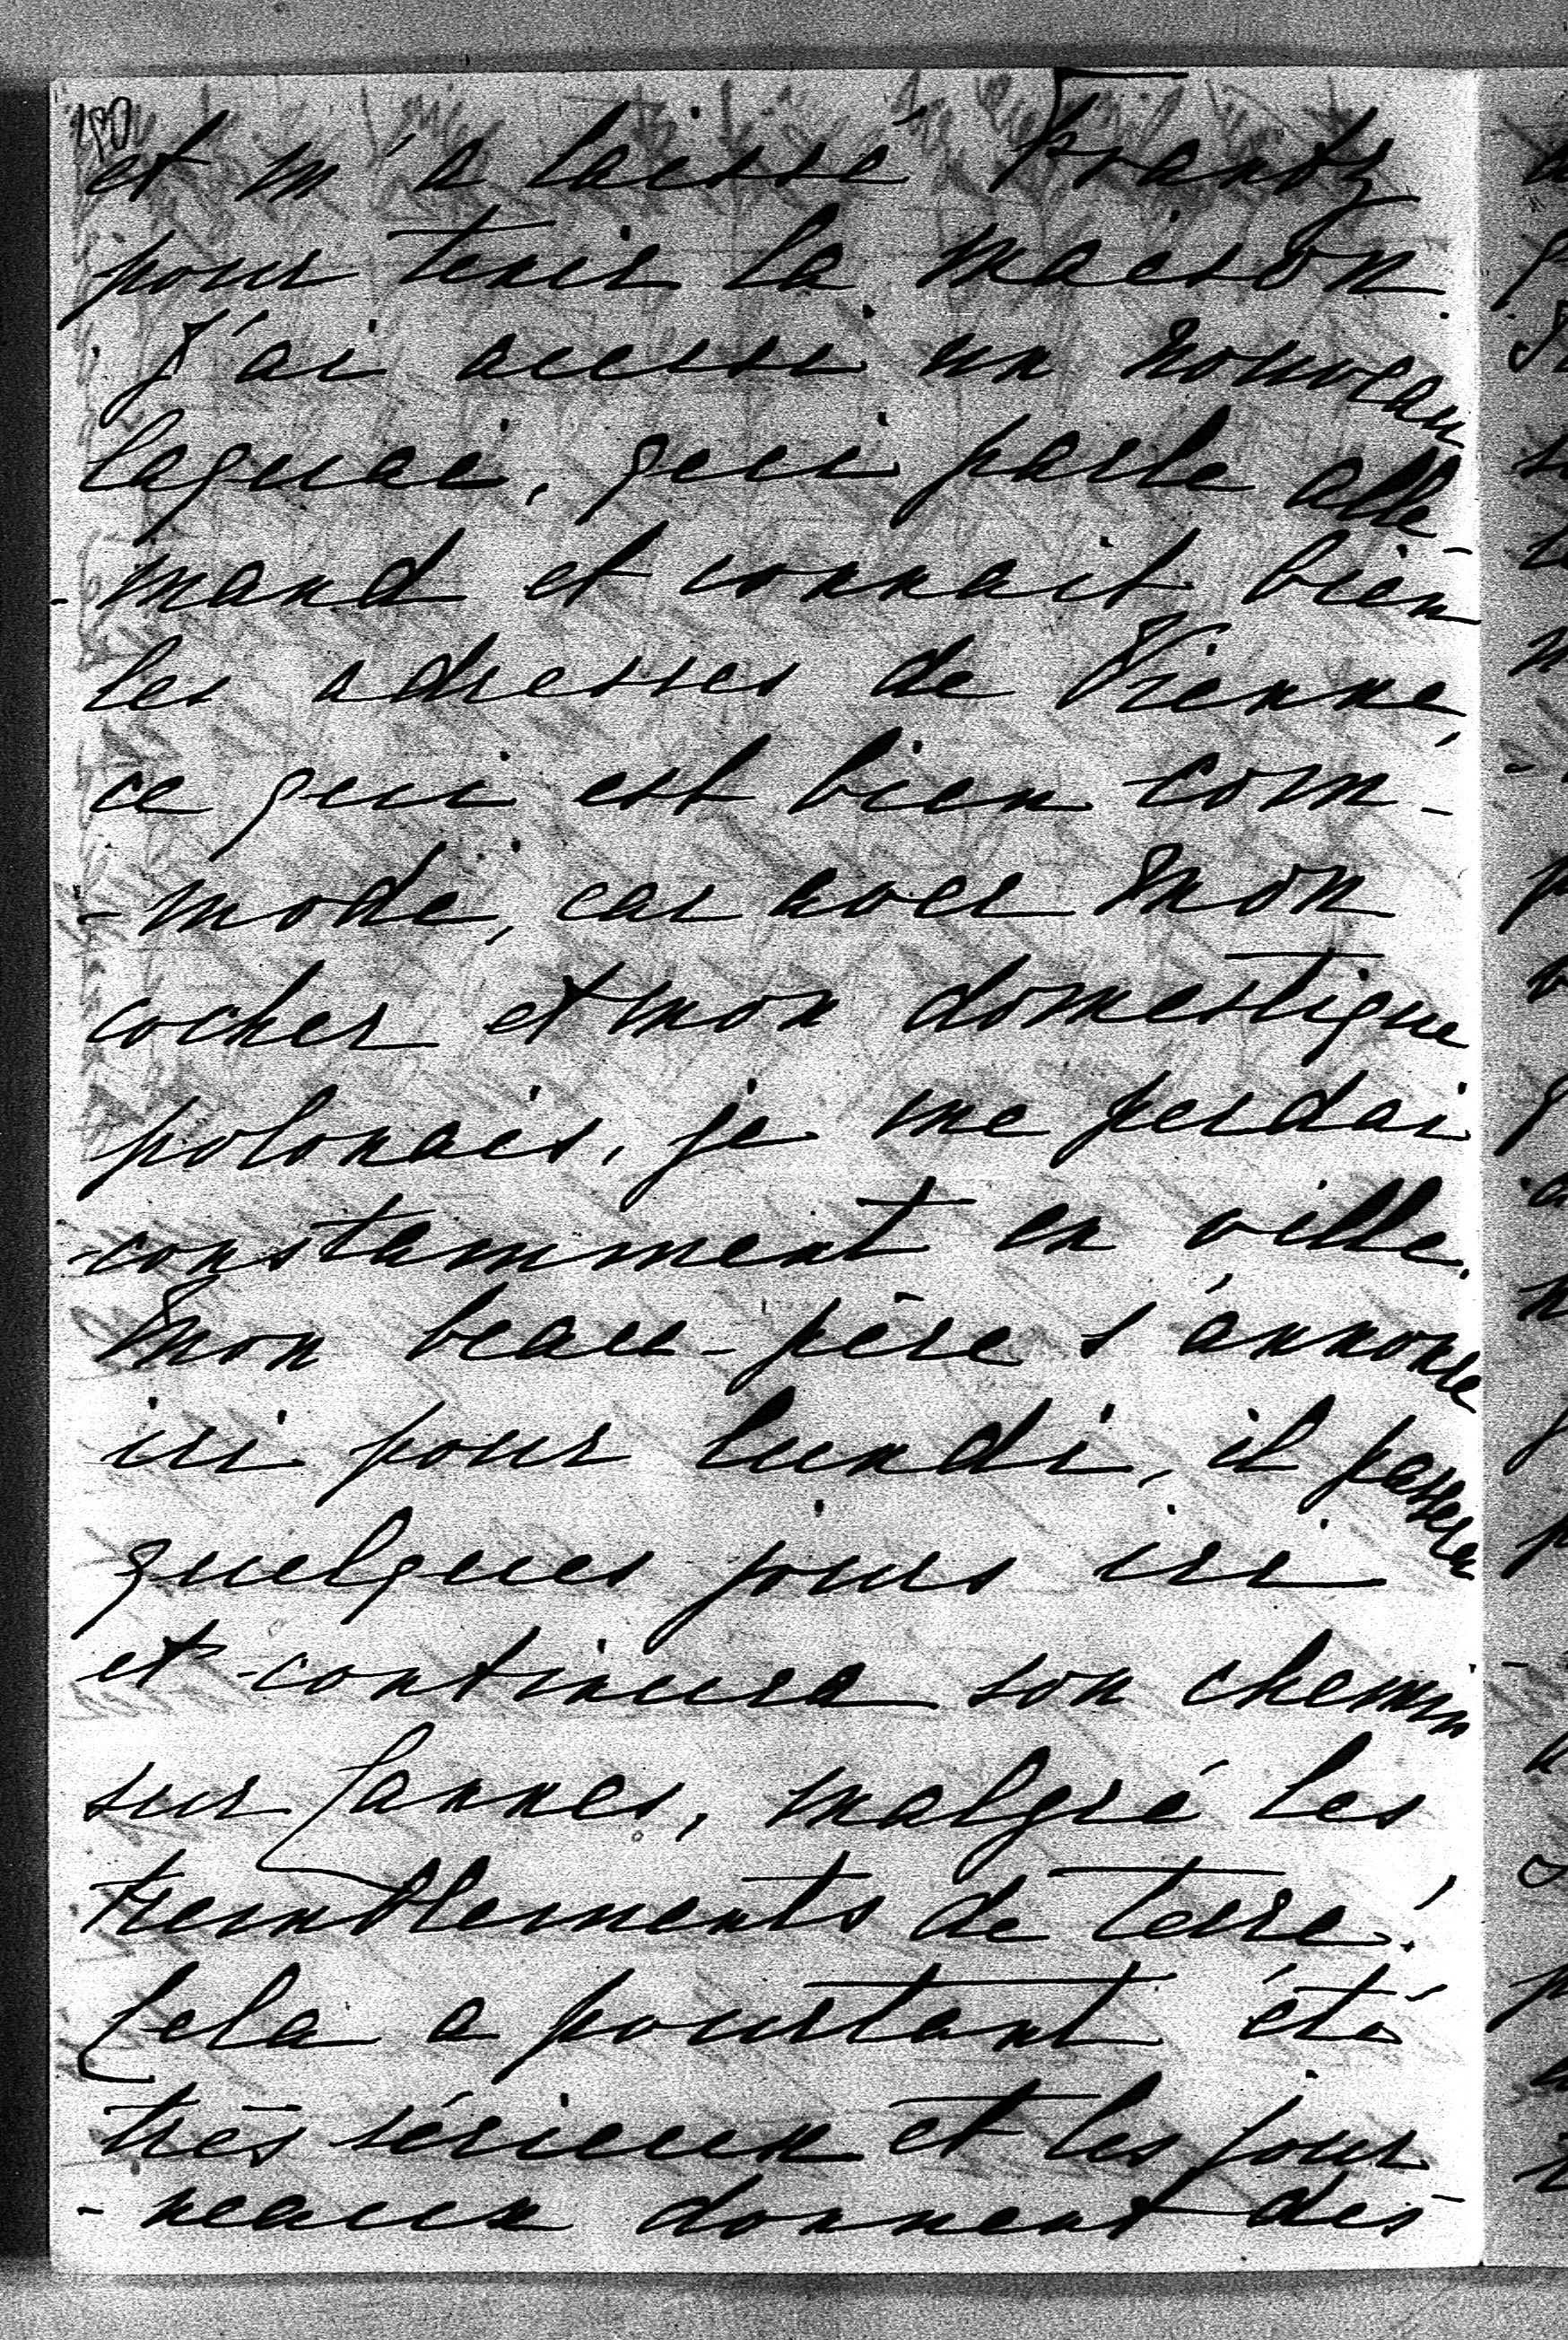 et m'a laissé Frantz
pour tenir la maison.
J'ai aussi un nouveau
laquai, qui parle alle
-mand et connait bien
les adresses de Vienne,
ce qui est bien com-
-mode, car avec mon
cocher et mon domestique
polonais, je me perdai
constamment en ville.
Mon beau-père s'annonce
ici pour lundi, il passera
quelques jours ici
et continuera son chemin
sur Cannes, malgré les
tremblements de terre!
Cela a pourtant été
très sérieux et les jour
-neaux donnent des